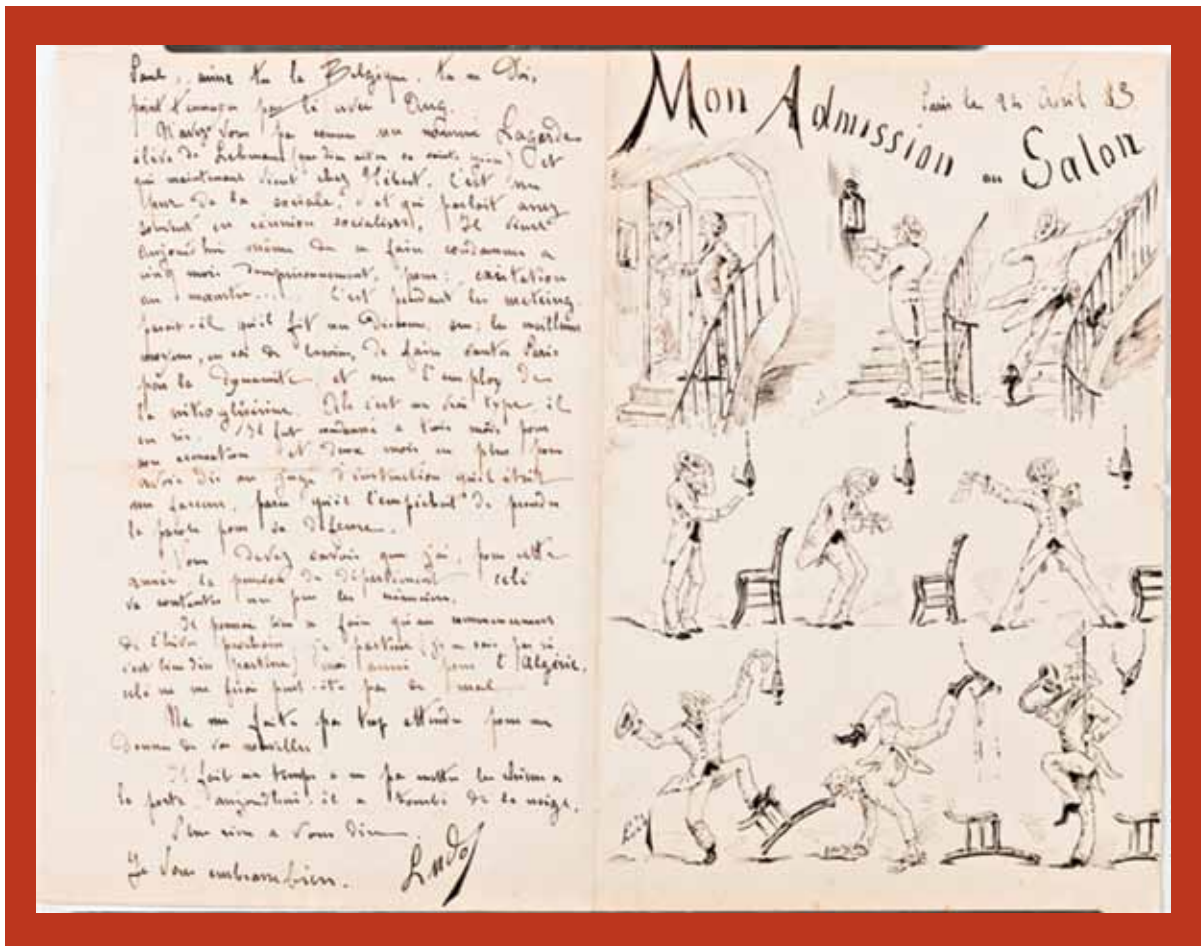 Paul, aime tu la Belgique, tu en
point t'ennuyer pas ici avec Aug.
N'avez vous pas connu un nommé Lagarde
élève de Lehmann (que dieu ait en sainte) et
qui maintenant vient chez Hébert. C'est un
pur de la sociale, et qui parlait assez
souvent en réunion socialiste. Il vient
aujourd'hui même de se faire condamner a
cinq mois d'emprisonnement, pour: excitation
au meurtre.... C'est pendant les meteing
parait-il qu'il fit un Discours, sur: les meilleurs
moyens, en cas de besoin, de faire sauter Paris
par la Dynamite, et sur l'employ de
la nitroglycérine. Ah c'est un vrai type, il
en rie. Il fut condamné a trois mois pour
son excitation et deux mois en plus pour
avoir dit au juge d'instruction qu'il était
un farceur, parce qu'il l'empêchait de prendre
la parole pour sa défense.
Vous Devez savoir que j'ai, pour cette
année, la pension du département celà
va contenter un peu les
Je pense bien a faire qu'au commencement
de l'hiver prochain je partirai (je ne sais pas si
c'est bien dire partirai) moi aussi pour l'Algérie,
celà ne me fera peut-être pas de mal
Ne me faite pas trop attendre pour me
Donner de vos nouvelles
Il fait un temps a ne pas mettre les chiens a
la porte aujourd'hui, il a tombé de la neige.
Plus rien a Vous dire
Je Vous embrasse bien.
Ludo
Paris le 24 Avril 83
Mon Admission au Salon